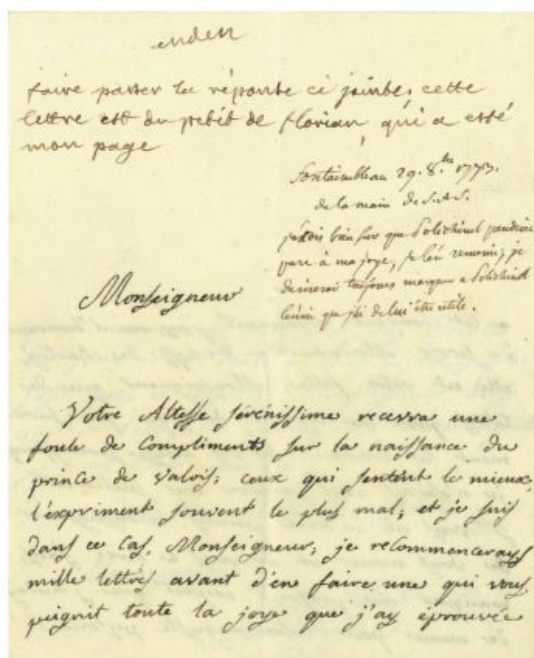 faire passer la réponse ci jointe, cette
lettre est du petit de florian, qui a esté
mon page
fontainebleau 29. 8.bre 1773.
de la main de S.A.S.
bien sur que Polichinel prendroit
part à ma joye, je l'en remercie, je
desirerai toujours marquer a Polichinel
l'envie que j'ai de lui être utile.
Monseigneur
Votre Altesse sérénissime recevra une
foule de compliments sur la naissance du
prince de valois; ceux qui sentent le mieux,
l'expriment souvent le plus mal; et je suis
dans ce cas, Monseigneur; je recommencerays
mille lettres avant d'en faire une qui vous
peignit toute la joye que j'ay éprouvée